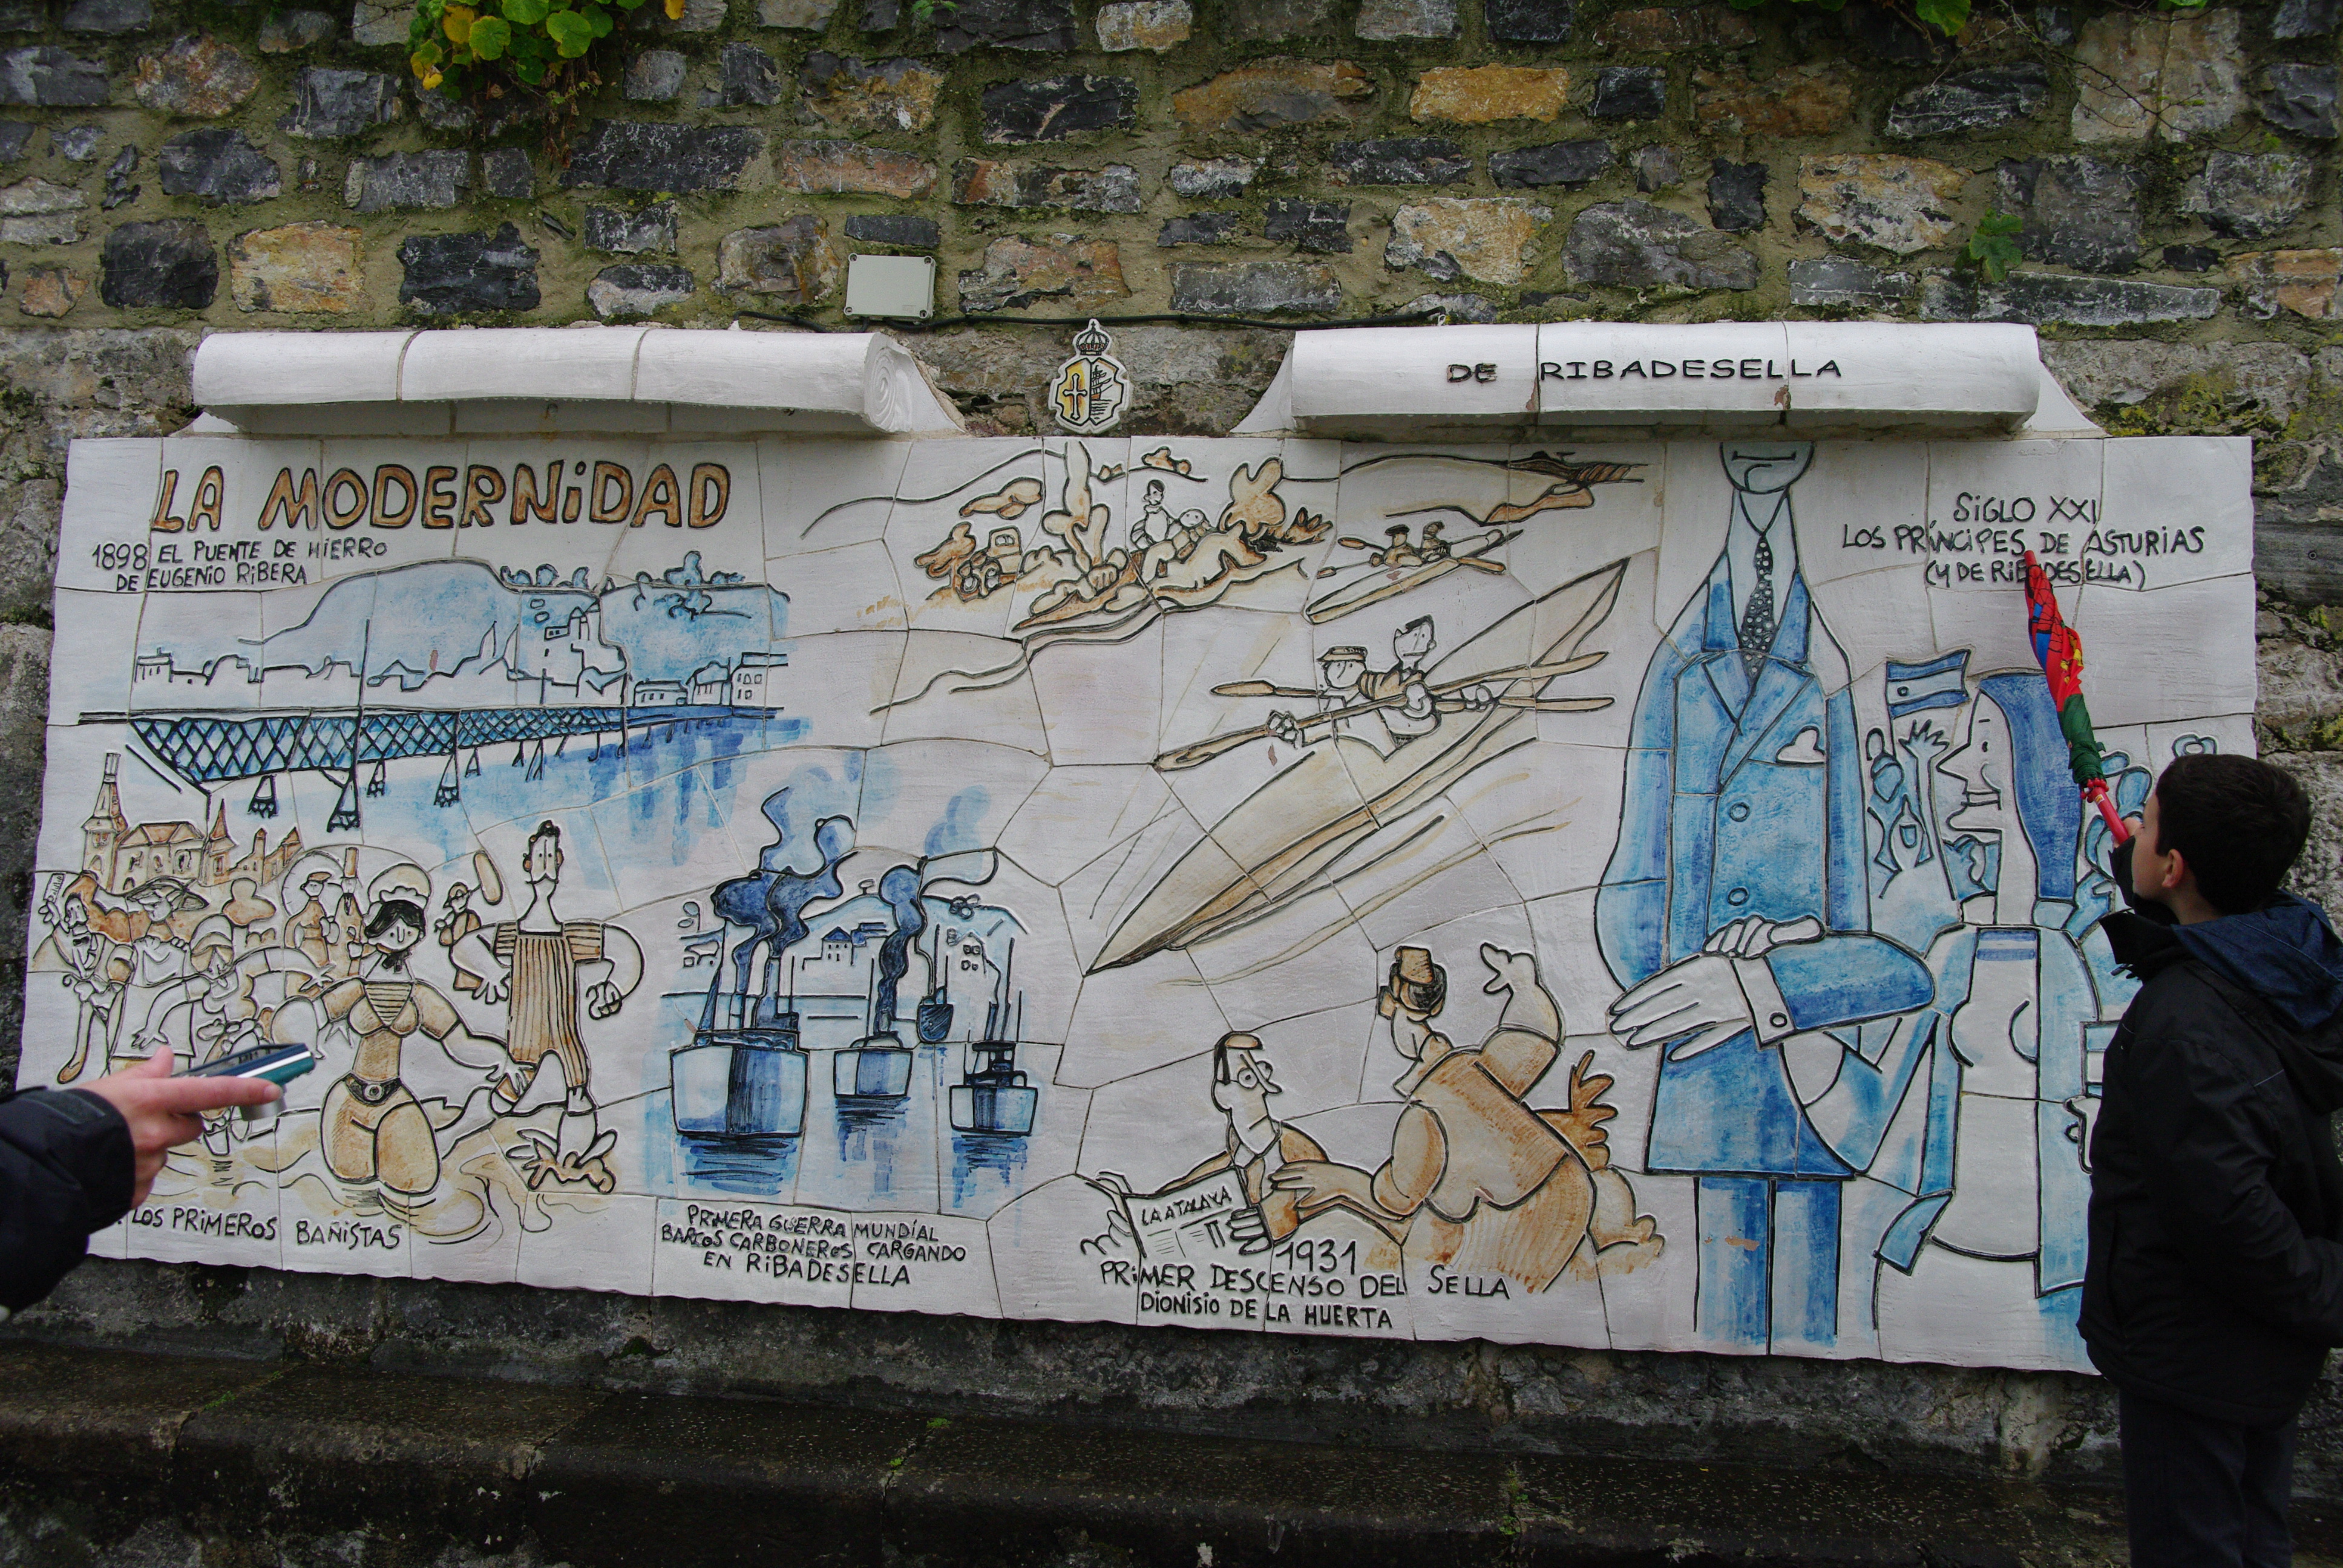 DE RIBADESELLA
LA MODERNiDAD
1898 EL PUENTE DE HiERRO
DE EUGENiO RiBERA
SiGLO XXI
LOS PRÍNCiPES DE ASTURIAS
(Y DE RIBADESELLA)
LOS PRiMEROS BAÑiSTAS
PRiMERA GUERRA MUNDÍAL
BARCOS CARBONEROS CARGANDO
EN RiBADESELLA
LA ATALAYA
1931
PRiMER DESCENSO DEL SELLA
DiONiSiO DE LA HUERTA